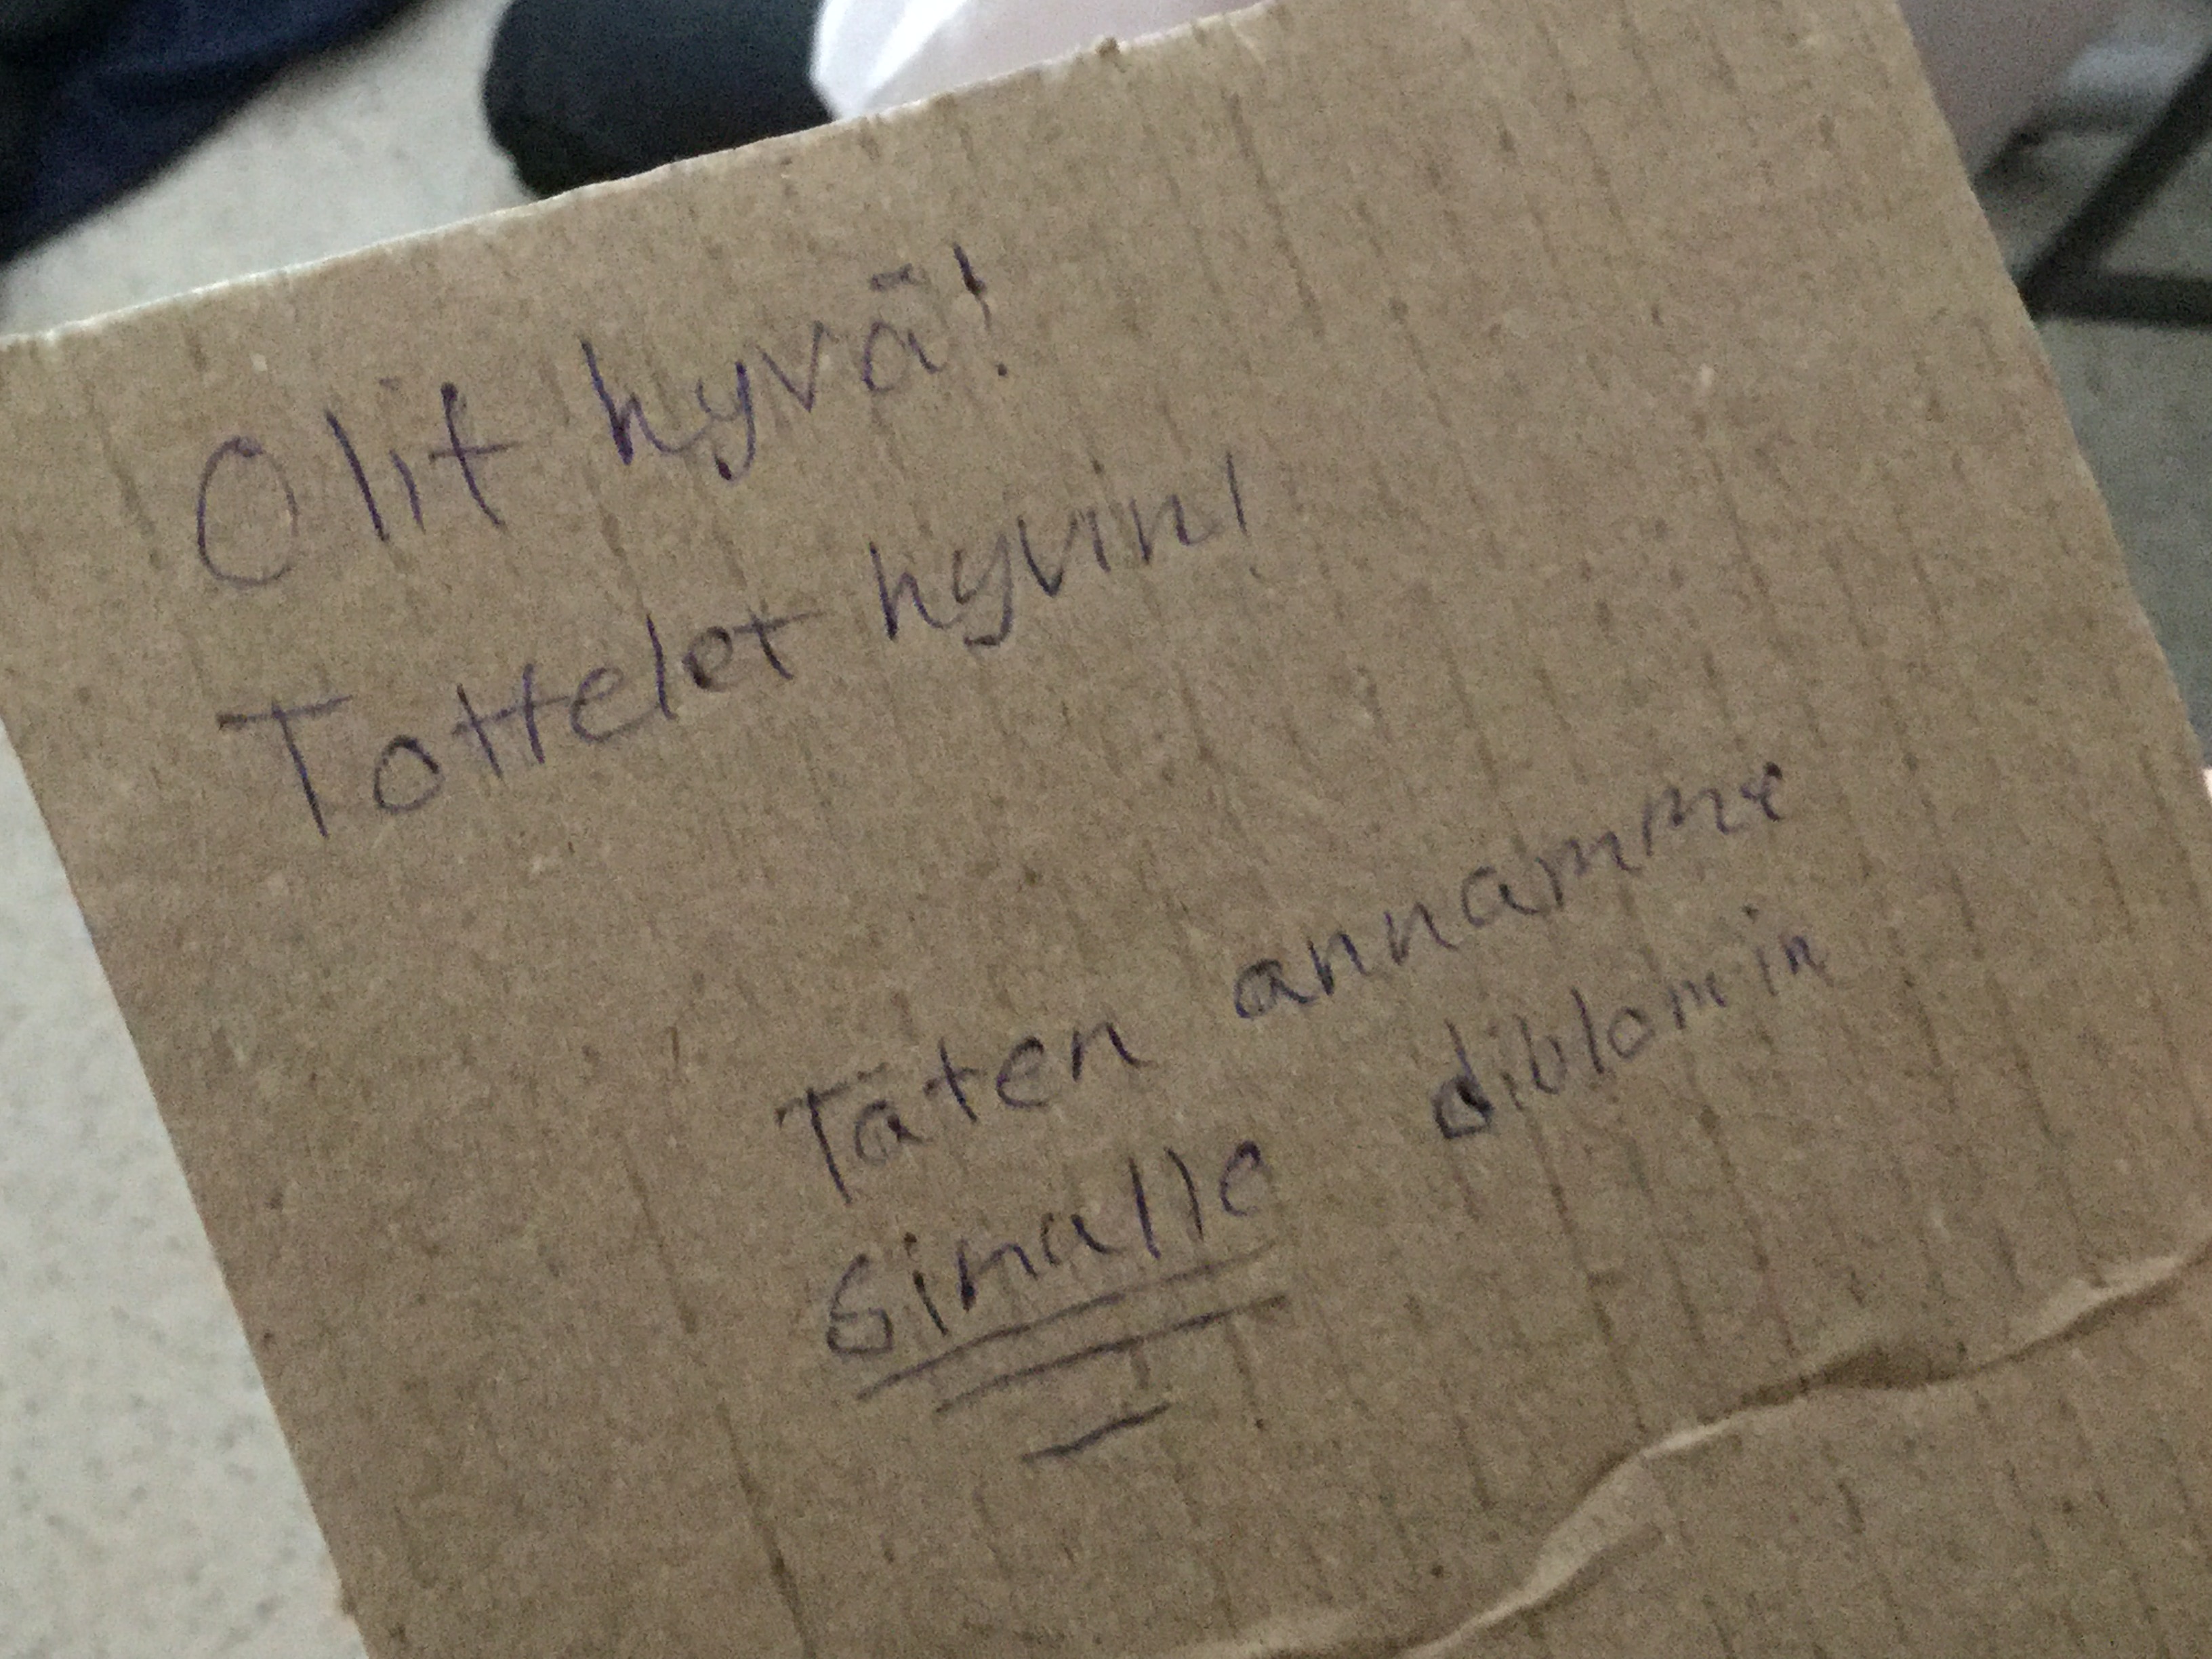 Olit hyvä!
Tottelet hyvin!
Täten annamme
Sinulle diblomin